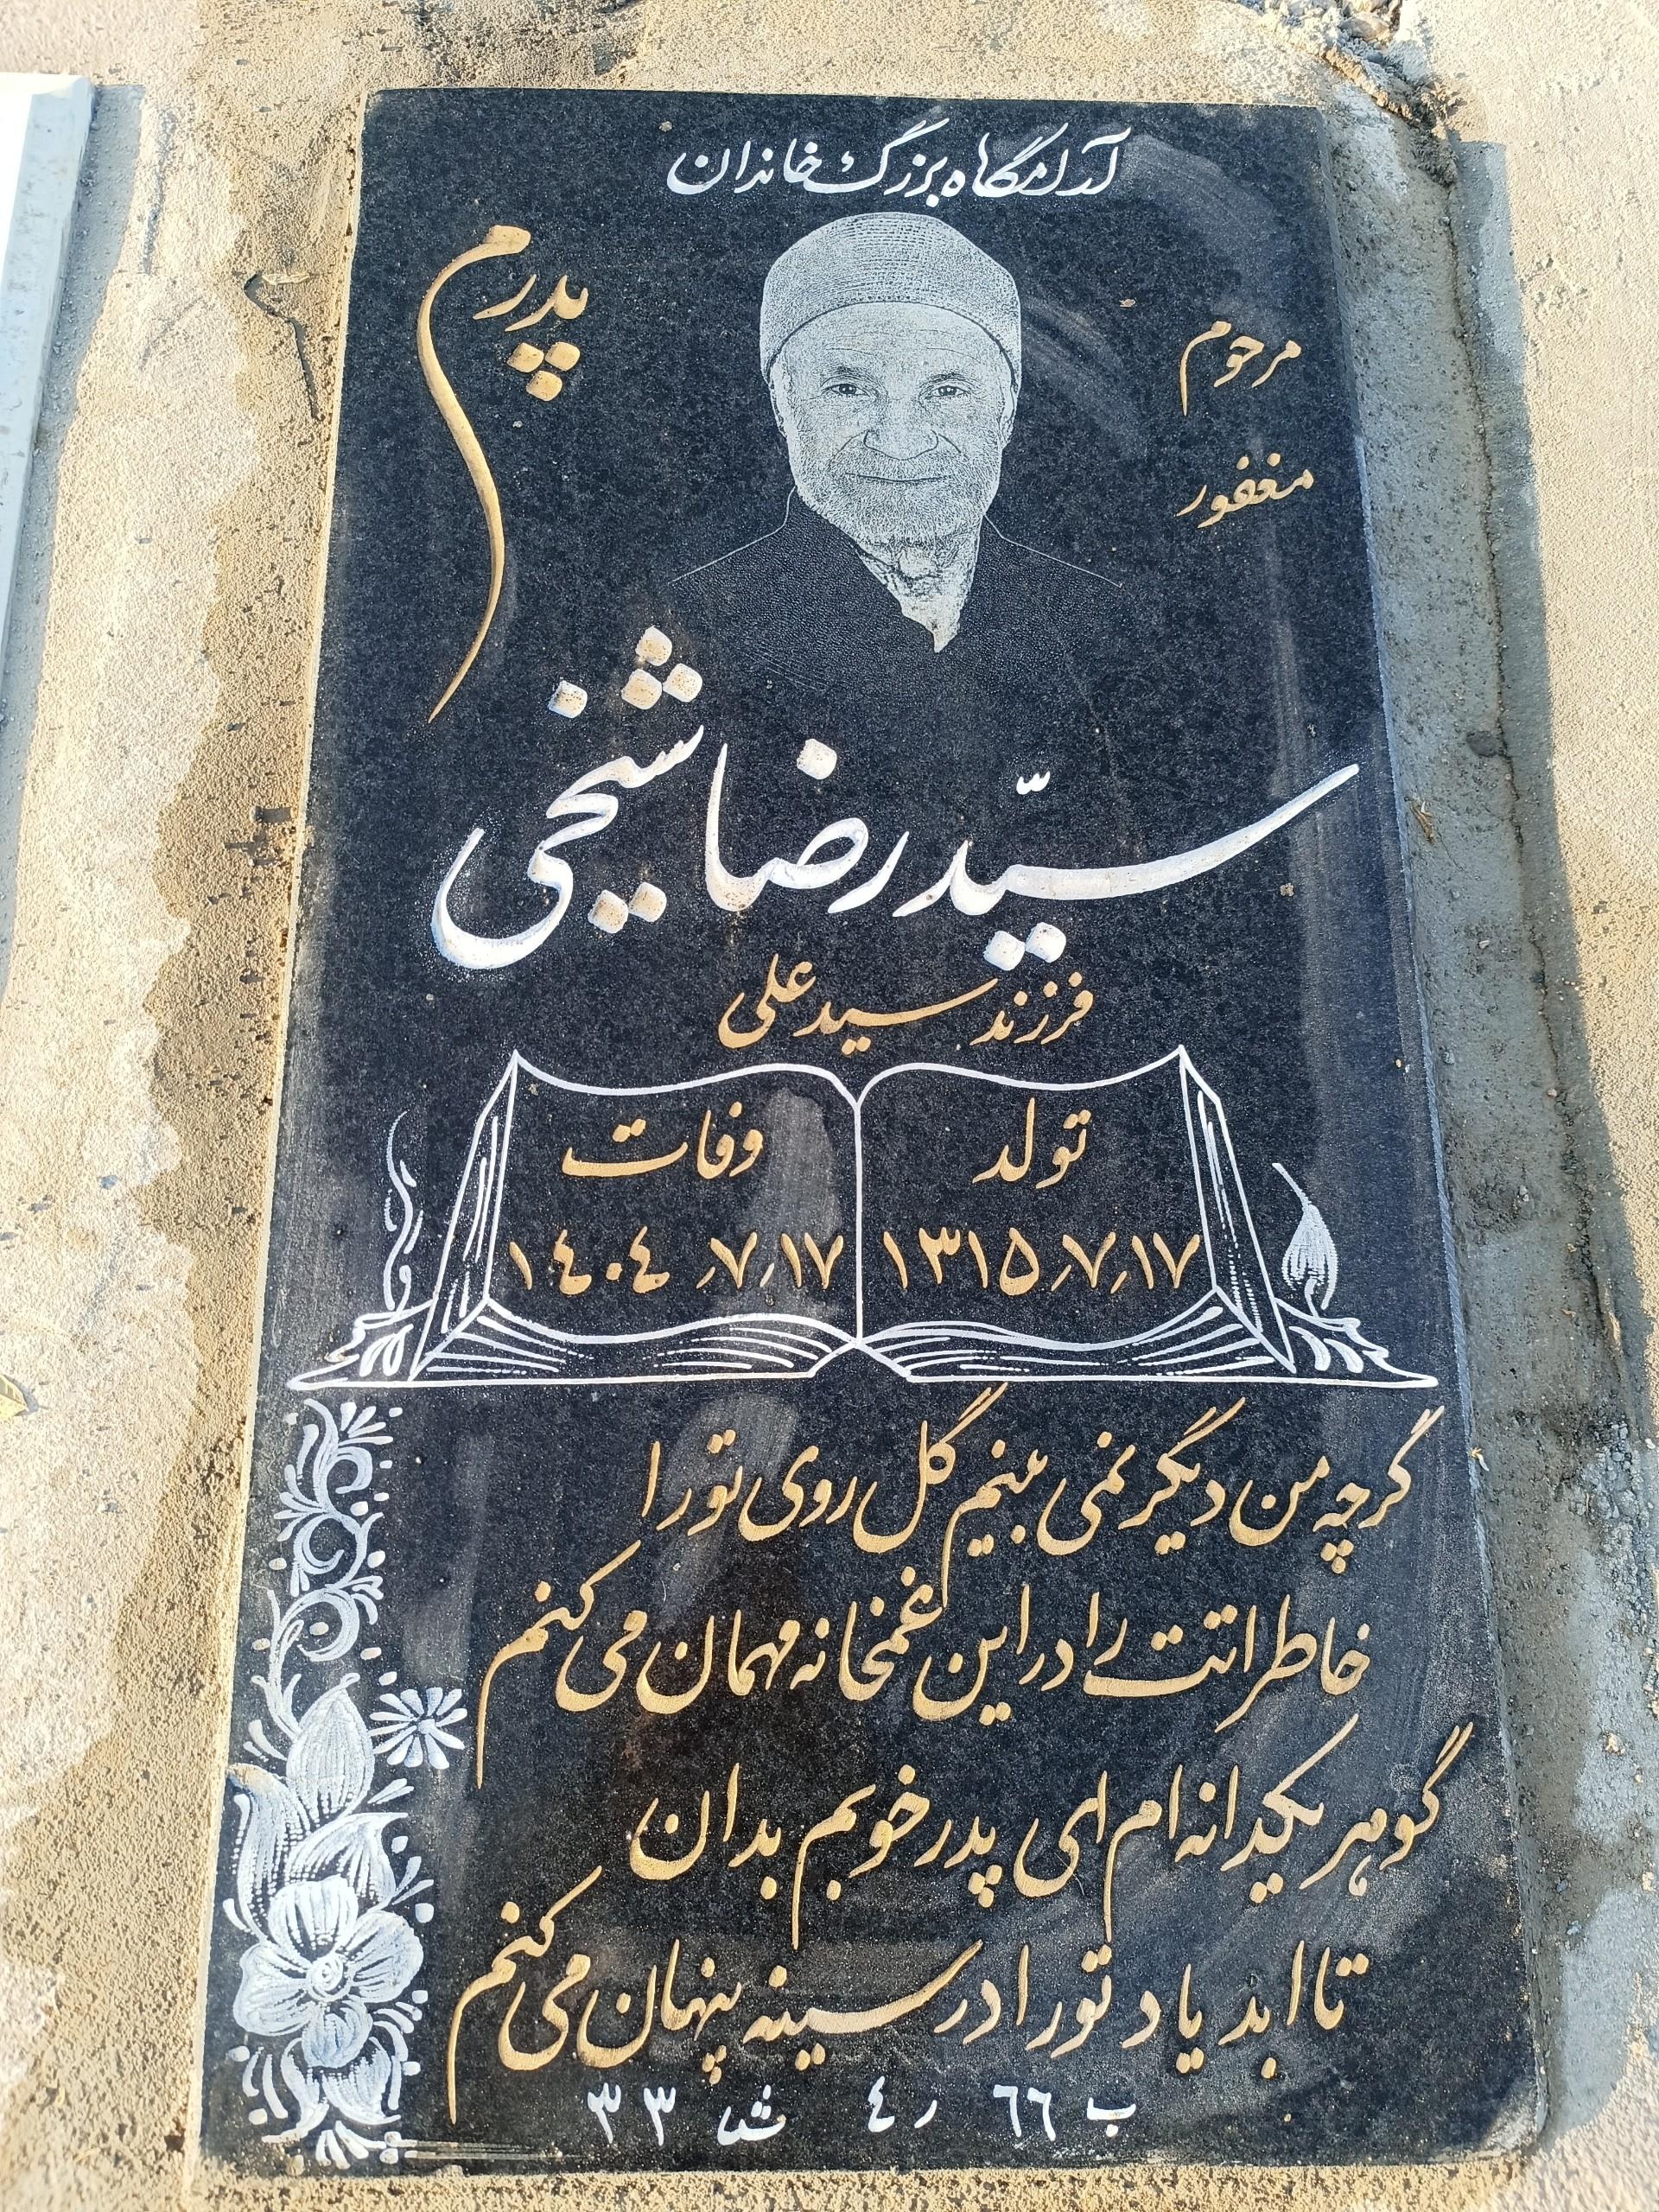 آرامگاه بزرگ خاندان
مرحوم
مغفور
پدرم
سیّد رضا شیخی
فرزند سید علی
تولد
۱۳۱۵٫۷٫۱۷
وفات
۱٤۰٤٫۷٫۱۷
گرچه من دیگر نمی بینم گل روی تو را
خاطراتت را در این غمخانه مهمان می کنم
گوهر یکدانه ام ای پدر خوبم بدان
تا ابد یاد تو را در سینه پنهان می کنم
ب ٦٦ ر ٤ ش ۳۳